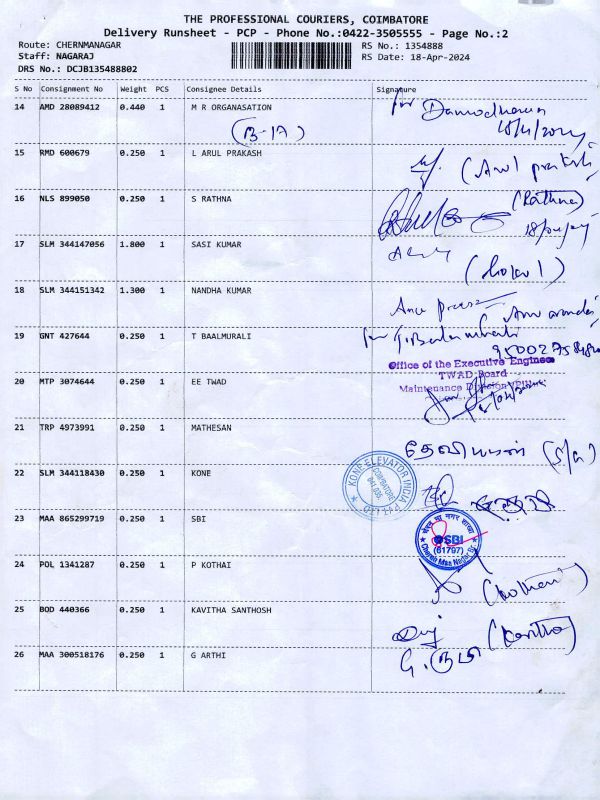 THE PROFESSIONAL COURIERS, COIMBATORE
Delivery Runsheet - PCP - Phone No.:0422-3505555 - Page No.:2
Route: CHERNMANAGAR RS No.: 1354888
Staff: NAGARAJ RS Date: 18-Apr-2024
DRS No.: DCJB135488802
S No Consignment No Weight PCS Consignee Details Signature
14 AMD 28089412 0.440 1 M R ORGANASATION for Damodharan
(B-17) 18/4/2024
15 RMD 600679 0.250 1 L ARUL PRAKASH (Arul prakash)
16 NLS 899050 0.250 1 S RATHNA (Rathna)
17 SLM 344147056 1.800 1 SASI KUMAR
18 SLM 344151342 1.300 1 NANDHA KUMAR
19 GNT 427644 0.250 1 T BAALMURALI for T. Balamurali
Office of the Executive Engineer
TWAD Board
20 MTP 3074644 0.250 1 EE TWAD Maintenance Division
21 TRP 4973991 0.250 1 MATHESAN
22 SLM 344118430 0.250 1 KONE KONE ELEVATOR INDIA PVT LTD
COIMBATORE
23 MAA 865299719 0.250 1 SBI SBI
(61797)
24 POL 1341287 0.250 1 P KOTHAI (Kothai)
25 BOD 440366 0.250 1 KAVITHA SANTHOSH (Kavitha)
26 MAA 300518176 0.250 1 G ARTHI